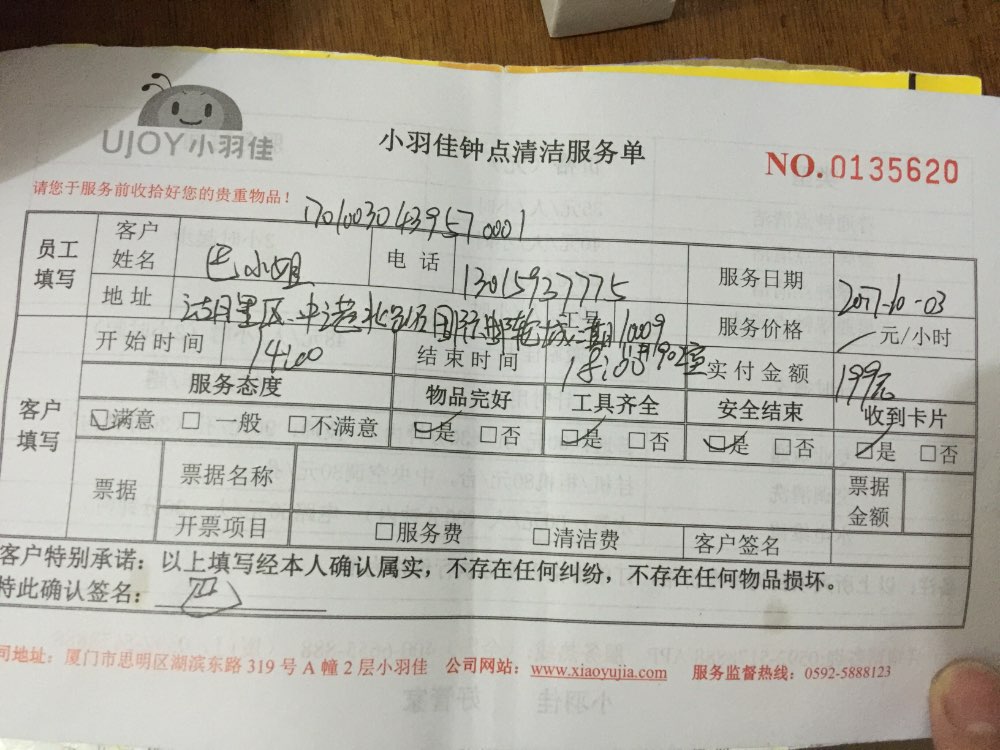 UJOY小羽佳
小羽佳钟点清洁服务单
NO.0135620
请您于服务前收拾好您的贵重物品！
员工填写
客户姓名
电话
13015937775
服务日期
2017-10-03
地址
服务价格
元/小时
开始时间
14:00
结束时间
18:00
实付金额
199元
客户填写
服务态度
物品完好
工具齐全
安全结束
收到卡片
☑满意 □一般 □不满意
☑是 □否
☑是 □否
☑是 □否
☑是 □否
票据
票据名称
票据金额
开票项目
□服务费
□清洁费
客户签名
客户特别承诺：以上填写经本人确认属实，不存在任何纠纷，不存在任何物品损坏。
特此确认签名：
司地址：厦门市思明区湖滨东路 319 号 A 幢 2 层小羽佳 公司网站：www.xiaoyujia.com 服务监督热线：0592-5888123